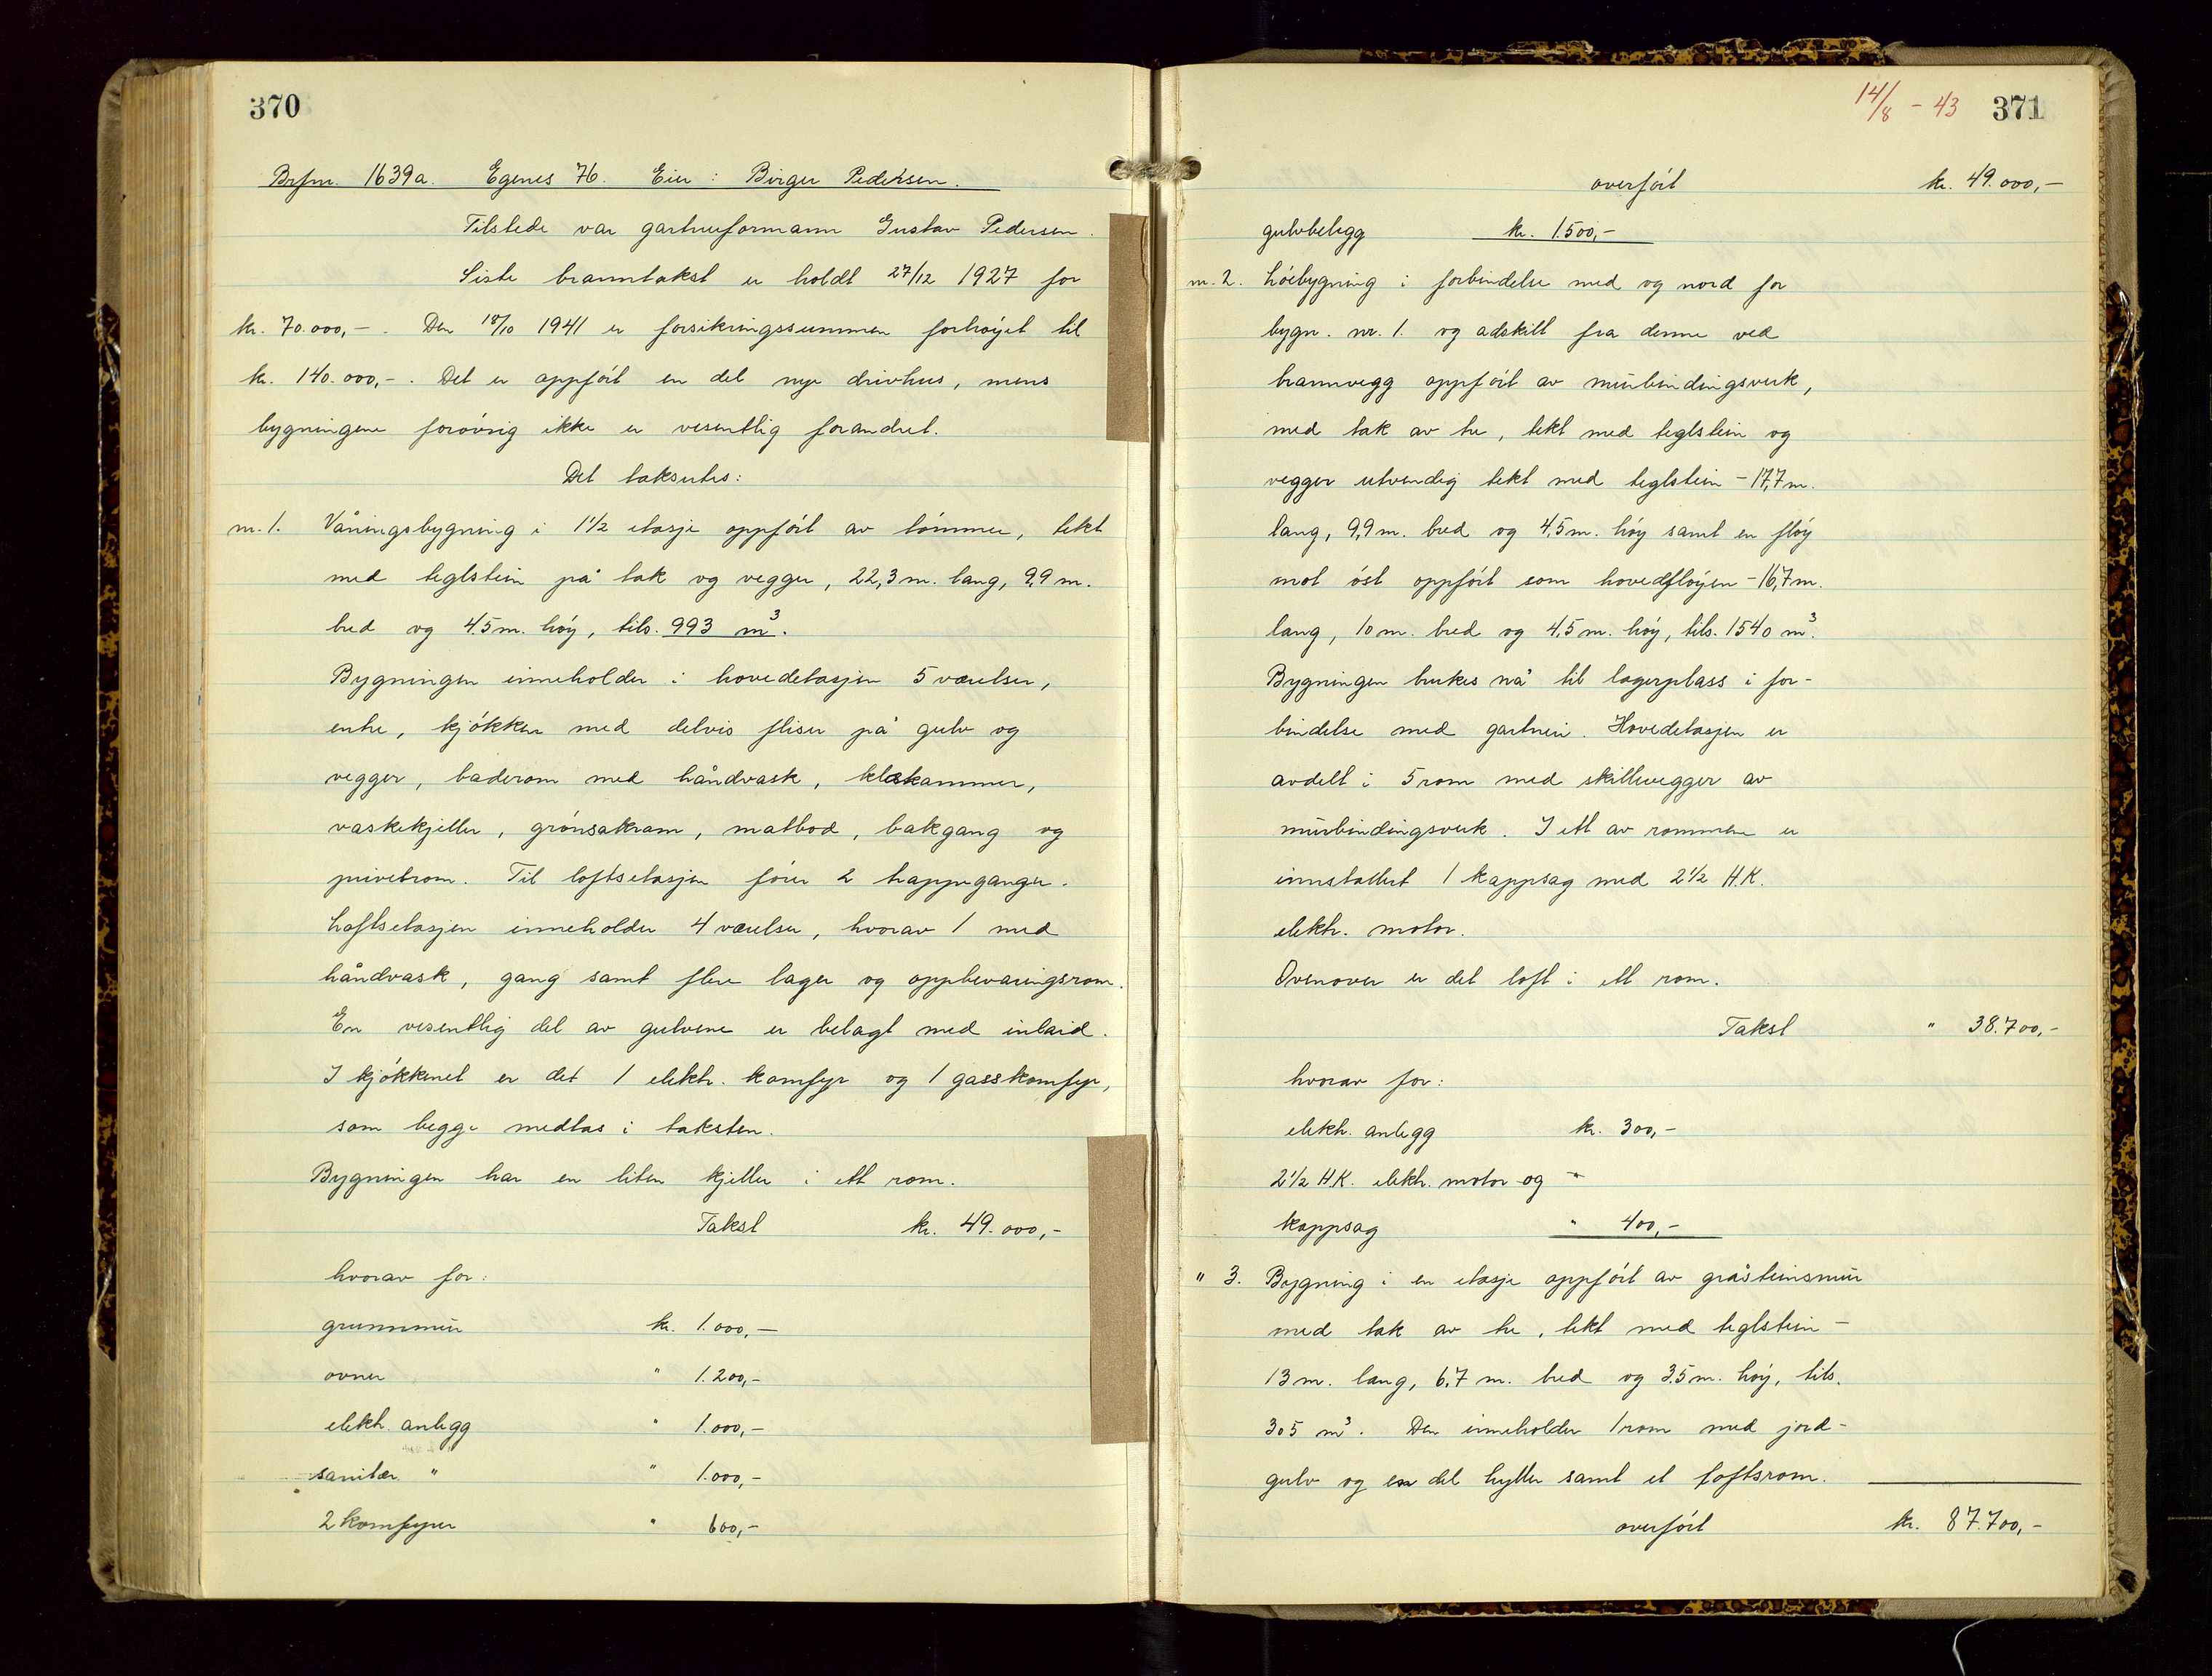 370
Brfnr. 1639a. Egenes 76. Eier: Birger Pedersen.
Tilstede var gartnerformann Gustav Pedersen.
Siste branntakst er holdt 27/12 1927 for
kr. 70.000,-. Den 18/10 1941 er forsikringssummen forhøyet til
kr. 140.000,-. Det er oppført en del nye drivhus, mens
bygningene forøvrig ikke er vesentlig forandret.
Det takseres:
nr. 1. Våningsbygning i 1 1/2 etasje oppført av tømmer, tekt
med teglstein på tak og vegger, 22,3 m. lang, 9,9 m.
bred og 4,5 m. høy, tils. 993 m³.
Bygningen inneholder i hovedetasjen 5 værelser,
entre, kjøkken med delvis fliser på gulv og
vegger, baderom med håndvask, kleskammer,
vaskekjeller, grønsakrom, matbod, bakgang og
privetrom. Til loftsetasjen fører 2 trappeganger.
Loftsetasjen inneholder 4 værelser, hvorav 1 med
håndvask, gang samt flere lager og oppbevaringsrom.
En vesentlig del av gulvene er belagt med inlaid.
I kjøkkenet er det 1 elektr. komfyr og 1 gasskomfyr,
som begge medtas i taksten.
Bygningen har en liten kjeller i ett rom.
Takst kr. 49.000,-
hvorav for:
grunnmur kr. 1.000,-
ovner " 1.200,-
elektr. anlegg " 1.000,-
sanitær " " 1.000,-
2 komfyrer " 600,-
14/8 - 43 371
overført kr. 49.000,-
gulvbelegg kr. 1.500,-
nr. 2. Høebygning i forbindelse med og nord for
bygn. nr. 1. og adskilt fra denne ved
brannvegg oppført av murbindingsverk,
med tak av tre, tekt med teglstein og
vegger utvendig tekt med teglstein - 17,7 m.
lang, 9,9 m. bred og 4,5 m. høy samt en fløy
mot øst oppført som hovedfløyen - 16,7 m.
lang, 10 m. bred og 4,5 m. høy, tils. 1540 m³.
Bygningen brukes nå til lagerplass i for-
bindelse med gartneri. Hovedetasjen er
avdelt i 5 rom med skillevegger av
murbindingsverk. I ett av rommene er
innstallert 1 kappsag med 2 1/2 H.K.
elektr. motor.
Ovenover er det loft i ett rom.
Takst " 38.700,-
hvorav for:
elektr. anlegg kr. 300,-
2 1/2 H.K. elektr. motor og "
kappsag " 400,-
" 3. Bygning i en etasje oppført av gråsteinsmur
med tak av tre, tekt med teglstein -
13 m. lang, 6,7 m. bred og 3,5 m. høy, tils.
305 m³. Den inneholder 1 rom med jord-
gulv og en del hyller samt et loftsrom.
overført kr. 87.700,-